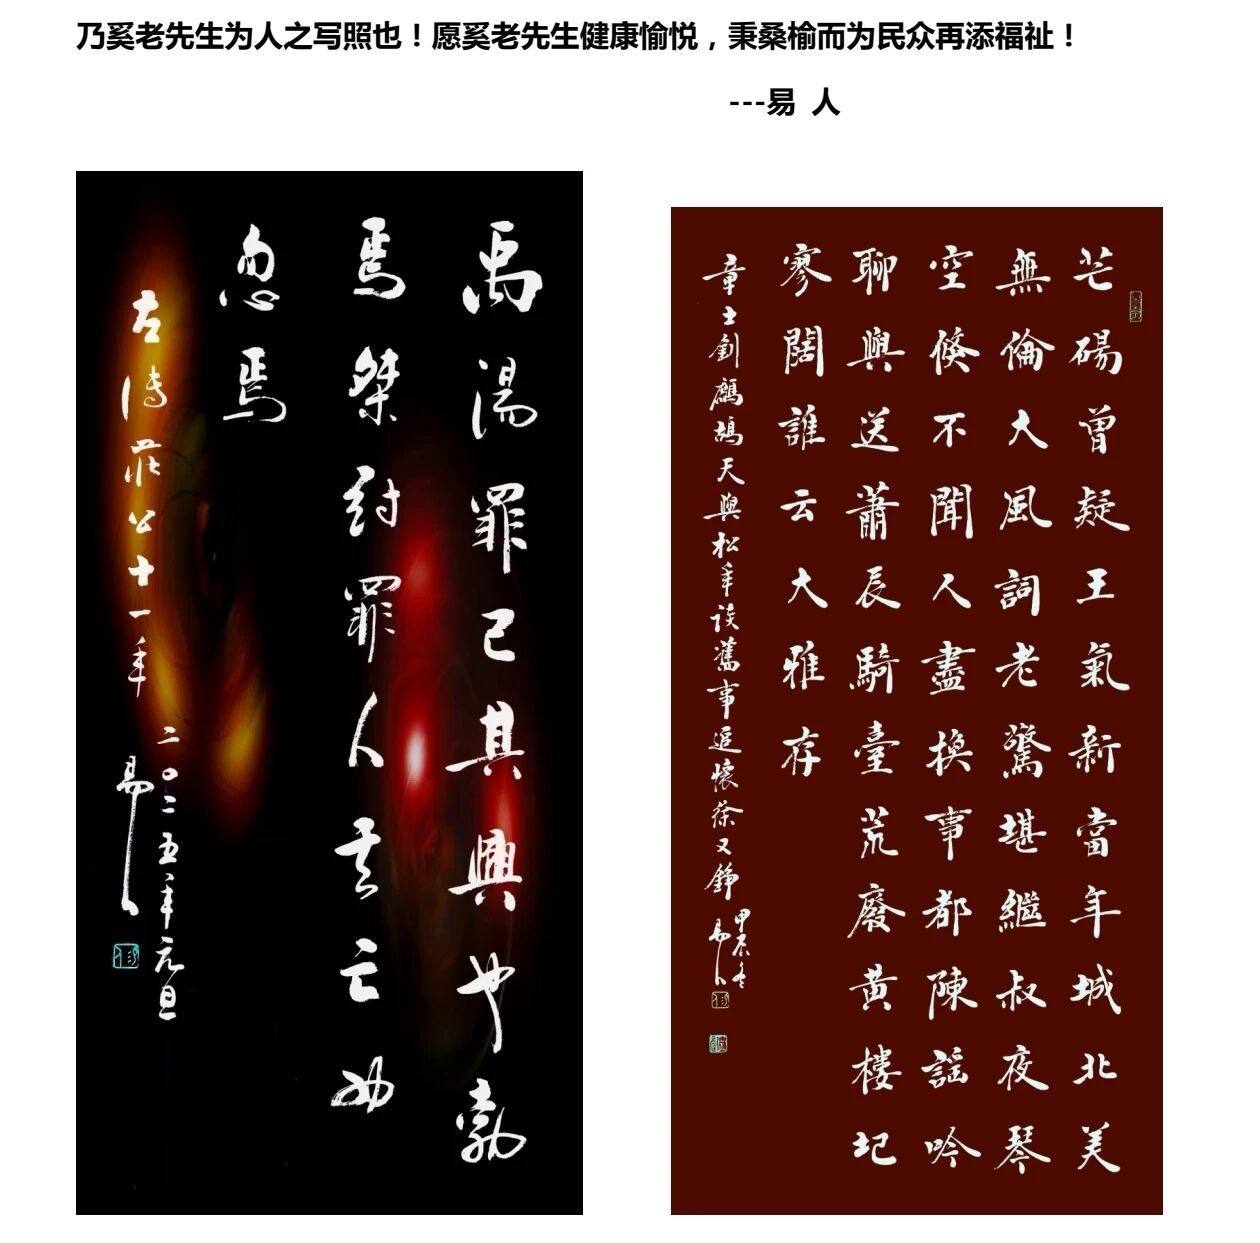 乃奚老先生为人之写照也！愿奚老先生健康愉悦，秉桑榆而为民众再添福祉！
---易 人
禹湯罪己其興也勃
焉桀紂罪人其亡也
忽焉
左傳莊公十一年
二〇二五年元旦
易人
芒碭曾疑王氣新當年城北美
無倫大風詞老驚堪繼叔夜琴
空倏不聞人盡換事都陳謡吟
聊與送蕭辰騎臺荒廢黄樓圮
寥闊誰云大雅存
章士釗鷓鴣天與松年談舊事追懷徐又錚
甲辰冬
易人